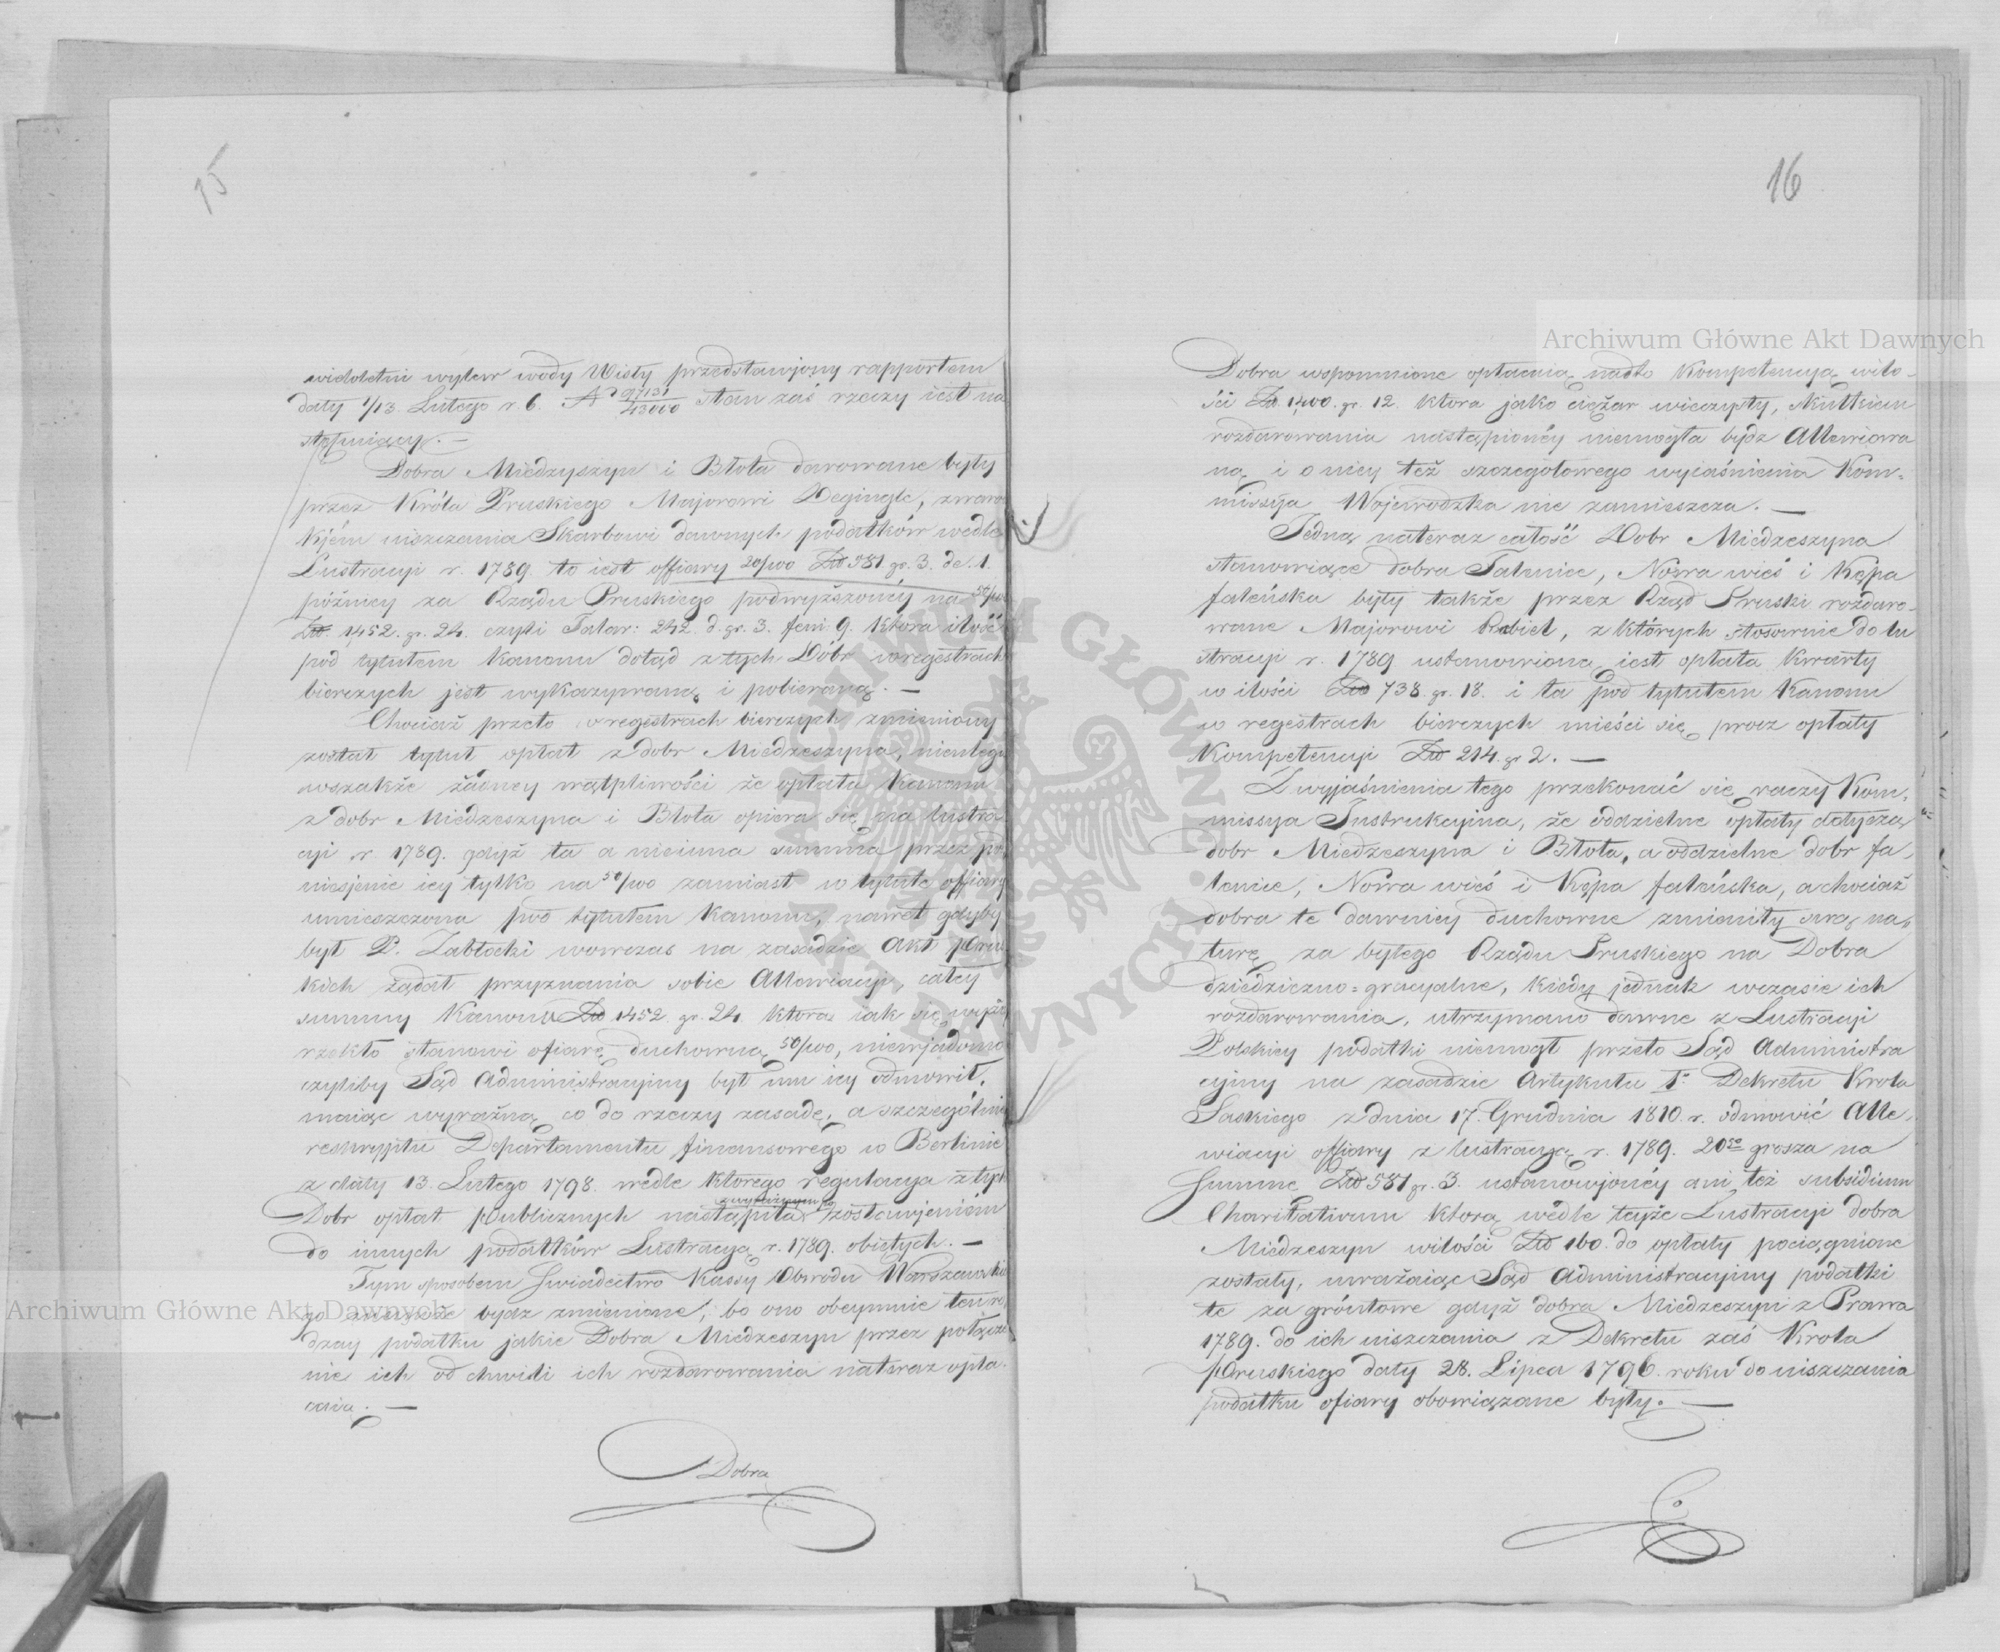 15
wieloletni wylew wody Wisły przedstawiony rapportem
daty 1/13 Lutego r. b. № 97131/43000 stan zaś rzeczy iest na
stępuiący. —
Dobra Miedzyszyn i Błota darowane były
przez Króla Pruskiego Majorowi Degingk, z waro
kjém uiszczania Skarbowi dawnych podatków wedle
Lustracyi r. 1789 to iest offiary 20/100 Złł 581 gr. 3. de. 1.
póżniey za Rządu Pruskiego podwyższonéy na 50/100
Złł. 1452. gr. 24. czyli Talar: 242. d. gr. 3. feni. 9. która ilość
pod tytułem Kanonu dotąd z tych Dóbr w regestrach
bierczych jest wykazywaną i pobieraną. —
Chociaż przeto w regestrach bierczych zmieniony
został tytuł opłat z dobr Miedzeszyna, nieulega
wszakże żadney wątpliwości że opłata Kanonu
z dobr Miedzeszyna i Błota opiera się na lustra
cyi r. 1789. gdyż ta a nieinna summa przez po
niesjenie iey tylko na 50/100 zamiast w tytule offiary
umieszczona pod tytułem Kanonu, nawet gdyby
był P. Zabłocki wowczas na zasadzie Akt prus
kich żądał przyznania sobie Allewiacyi, całey
summy Kanonu Złł 1452. gr. 24. ktora iak się wyżey
rzekło stanowi ofiarę duchowną 50/100, niewjadomo
czyliby Sąd Administracyiny był mu iey odmowił,
maiąc wyraźną co do rzeczy zasadę, a szczególnie
reskryptu Departamentu finansowego w Berlinie
z daty 13. Lutego 1798. wedle ktorego regulacya z tych
Dobr opłat publicznych nastąpiła z zostawjeniém
do innych podatków Lustracyą r. 1789. obiętych. —
Tym sposobem Swiadectwo Kassy Obwodu Warszawskie
go niemoże bydz zmienione, bo ono obeymuie ten ro
dzay podatku jakie Dobra Miedzeszyn przez połącze
nie ich od chwili ich rozdarowania nateraz opła
caia. —
Dobra
16
Dobra wspomnione opłacaią nadto Kompetencyą w ilo-
ści Złł. 1400. gr. 12. ktora jako ciężar wieczysty, skutkiem
rozdarowania nastąpionéy niemogła bydz Allewiowa
ną i o niey też szczegołowego wyiaśnienia Kom-
missya Wojewodzka nie zamieszcza. —
Jedną nateraz całość Dobr Miedzeszyna
stanowiące dobra Falenice, Nowa wieś i Kępa
falénska były także przez Rząd Pruski rozdaro-
wane Majorowi Rabiel, z których stosownie do lu
stracyi r. 1789 ustanowiona iest opłata Kwarty
w ilości Złł 738. gr. 18. i ta pod tytułem Kanonu
w regestrach bierczych mieści się procz opłaty
Kompetencyi Złł 214. gr. 2. —
Z wyjaśnienia tego przekonać się raczy Kom-
missya Instrukcyina, że oddzielne opłaty dotyczą
dobr Miedzeszyna i Błota, a oddzielne dobr fa-
lenice, Nowa wieś i Kępa falénska, a chociaż
dobra te dawniey duchowne zmieniły swą na-
turę za byłego Rządu Pruskiego na Dobra
dziedziczno=gracyalne, kiedy jednak w czasie ich
rozdarowania, utrzymano dawne z Lustracyi
Polskiey podatki niemogł przeto Sąd Administra
cyiny na zasadzie Artykułu 1o Dekretu Krola
Saskiego z dnia 17. Grudnia 1810. r. odmowić Alle-
wiacyi offiary z lustracyą r. 1789. 20go grosza na
Summe Złł 581 gr. 3. ustanowjonéy ani też subsidium
Charitativum ktora wedle teyże Lustracyi dobra
Miedzeszyn w ilości Złł 160. do opłaty pociągnione
zostały, uważaiąc Sąd Administracyiny podatki
te za gróntowe gdyż dobra Miedzeszyn z Prawa
1789. do ich uiszczania z Dekretu zaś Krola
Pruskiego daty 28. Lipca 1796. roku do uiszczania
podatku ofiary obowiązane były. —
Archiwum Główne Akt Dawnych
Archiwum Główne Akt Dawnych
ARCHIWUM GŁÓWNE AKT DAWNYCH